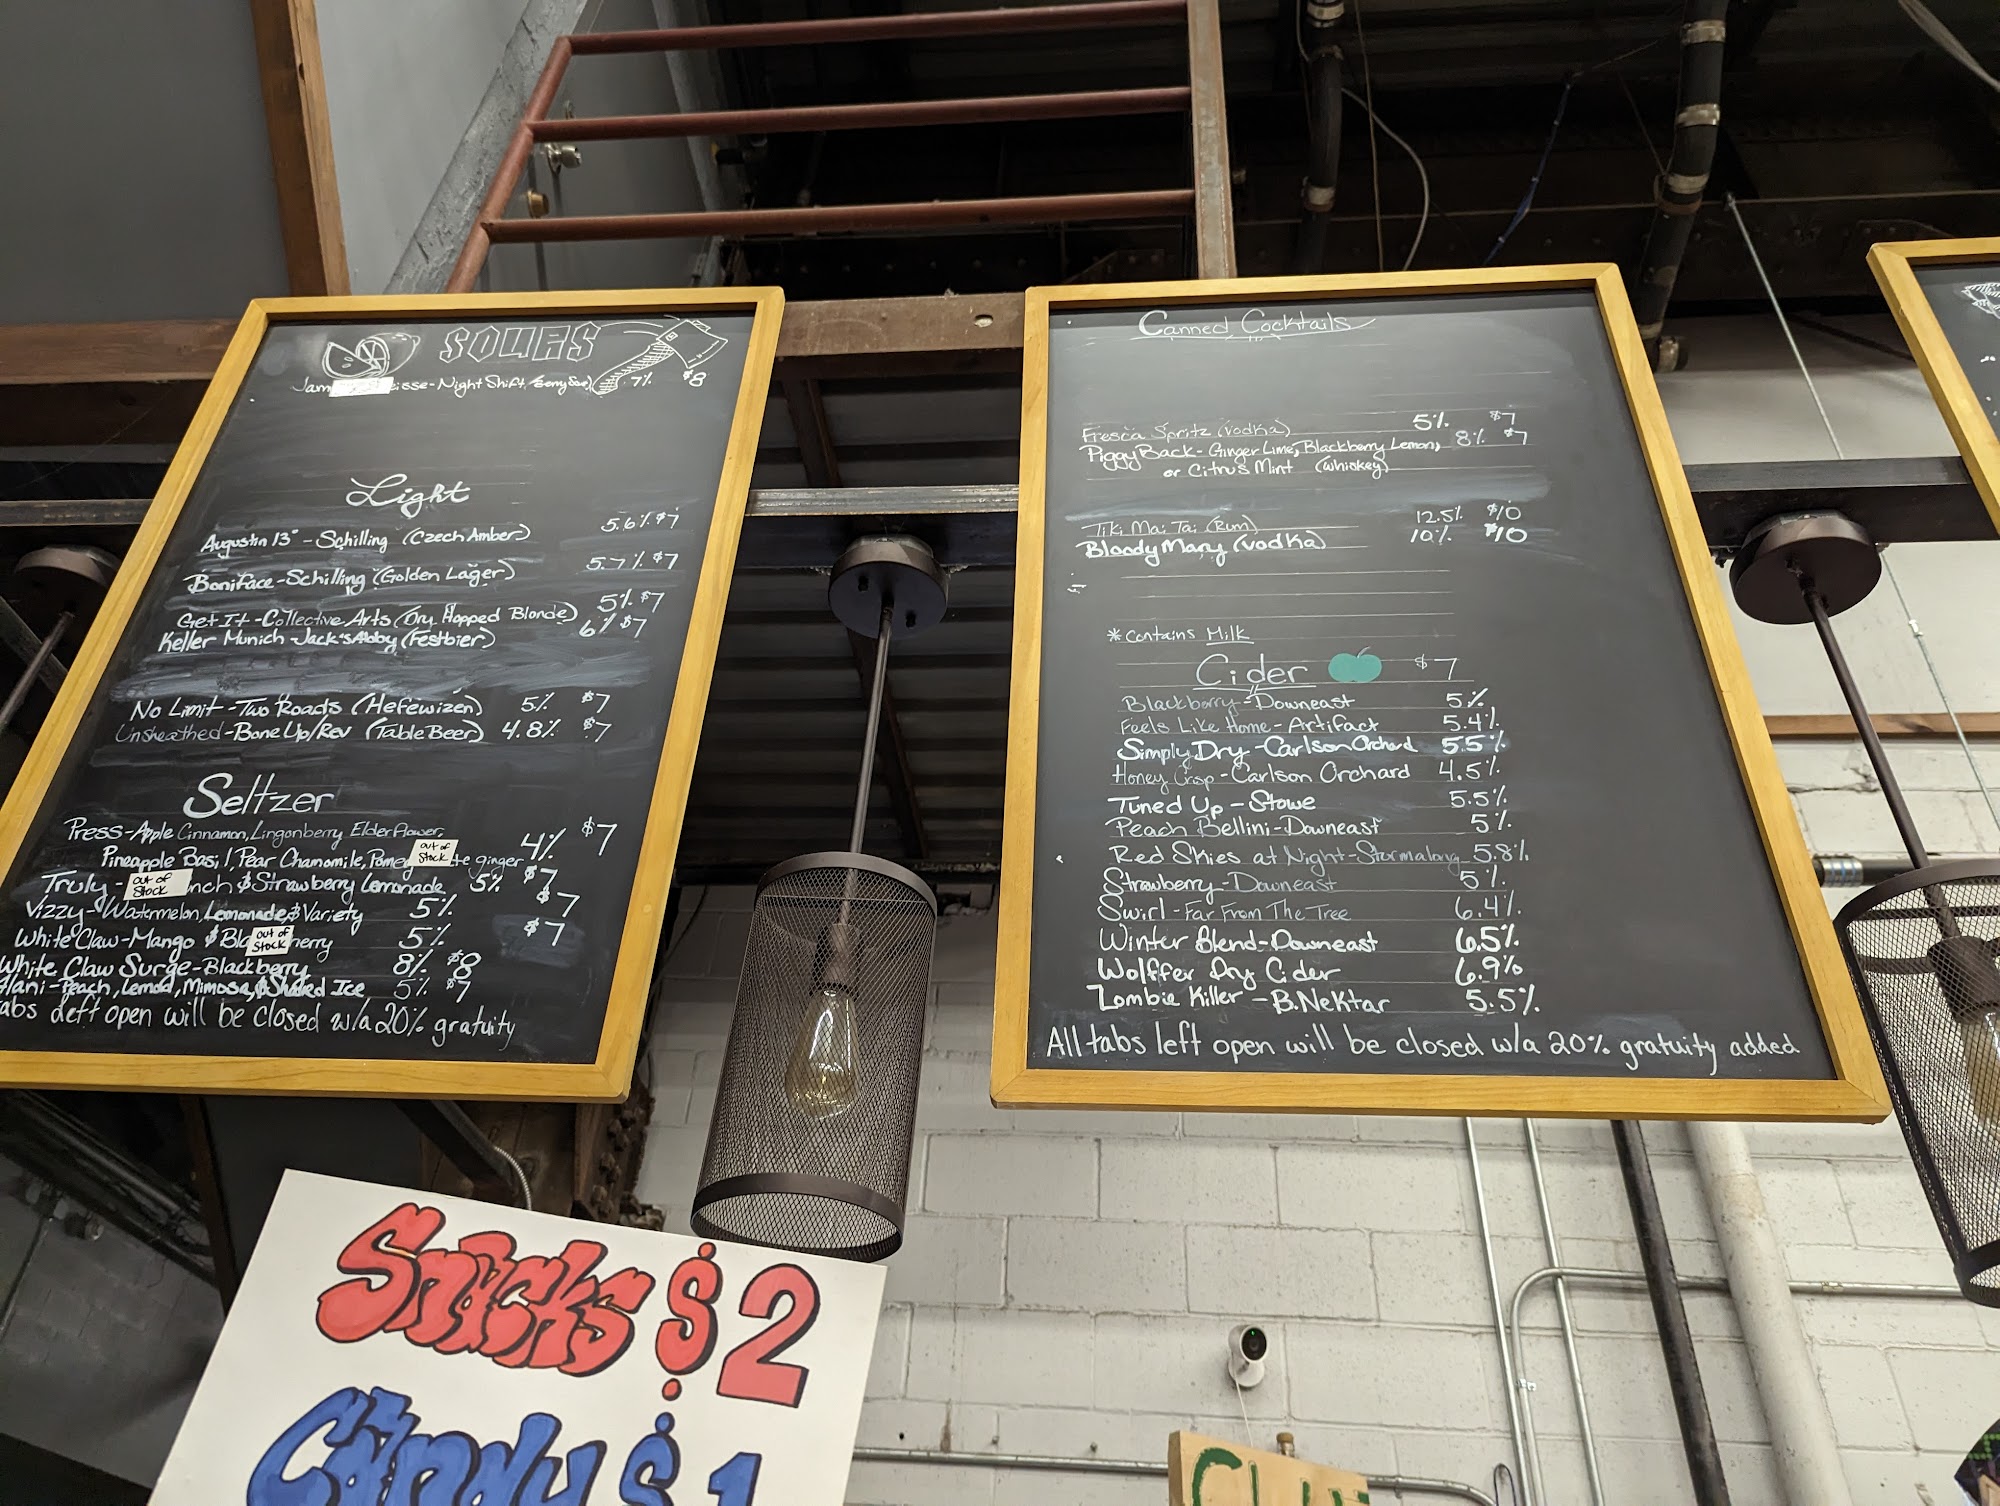 SOURS
Night Shift 7% $8
Light
Augustin 13° - Schilling (Czech Amber) 5.6% $7
Boniface - Schilling (Golden Lager) 5.7% $7
Get It - Collective Arts (Dry Hopped Blonde) 5% $7
Keller Munich - Jack's Abby (Festbier) 6% $7
No Limit - Two Roads (Hefewizen) 5% $7
Unsheathed - Bone Up/Rev (Table Beer) 4.8% $7
Seltzer
Press - Apple Cinnamon, Lingonberry Elderflower, 4% $7
Pineapple Basil, Pear Chamomile, Pomeg out of stock te ginger
Truly - out of stock nch & Strawberry Lemonade 5% $7
Vizzy - Watermelon, Lemonade & Variety 5% $7
White Claw - Mango & Bla out of stock herry 5% $7
White Claw Surge - Blackberry 8% $8
Alani - Peach, Lemon, Mimosa, & Shaved Ice 5% $7
tabs left open will be closed w/a 20% gratuity
Canned Cocktails
Fresca Spritz (Vodka) 5% $7
Piggy Back - Ginger Lime, Blackberry Lemon, 8% $7
or Citrus Mint (Whiskey)
Tiki Mai Tai (Rum) 12.5% $10
Bloody Mary (Vodka) 10% $10
*Contains Milk
Cider $7
Blackberry - Downeast 5%
Feels Like Home - Artifact 5.4%
Simply Dry - Carlson Orchard 5.5%
Honey Crisp - Carlson Orchard 4.5%
Tuned Up - Stowe 5.5%
Peach Bellini - Downeast 5%
Red Skies at Night - Stormalong 5.8%
Strawberry - Downeast 5%
Swirl - Far From The Tree 6.4%
Winter Blend - Downeast 6.5%
Wolffer Dry Cider 6.9%
Zombie Killer - B. Nektar 5.5%
All tabs left open will be closed w/a 20% gratuity added
Snacks $2
Candy $1